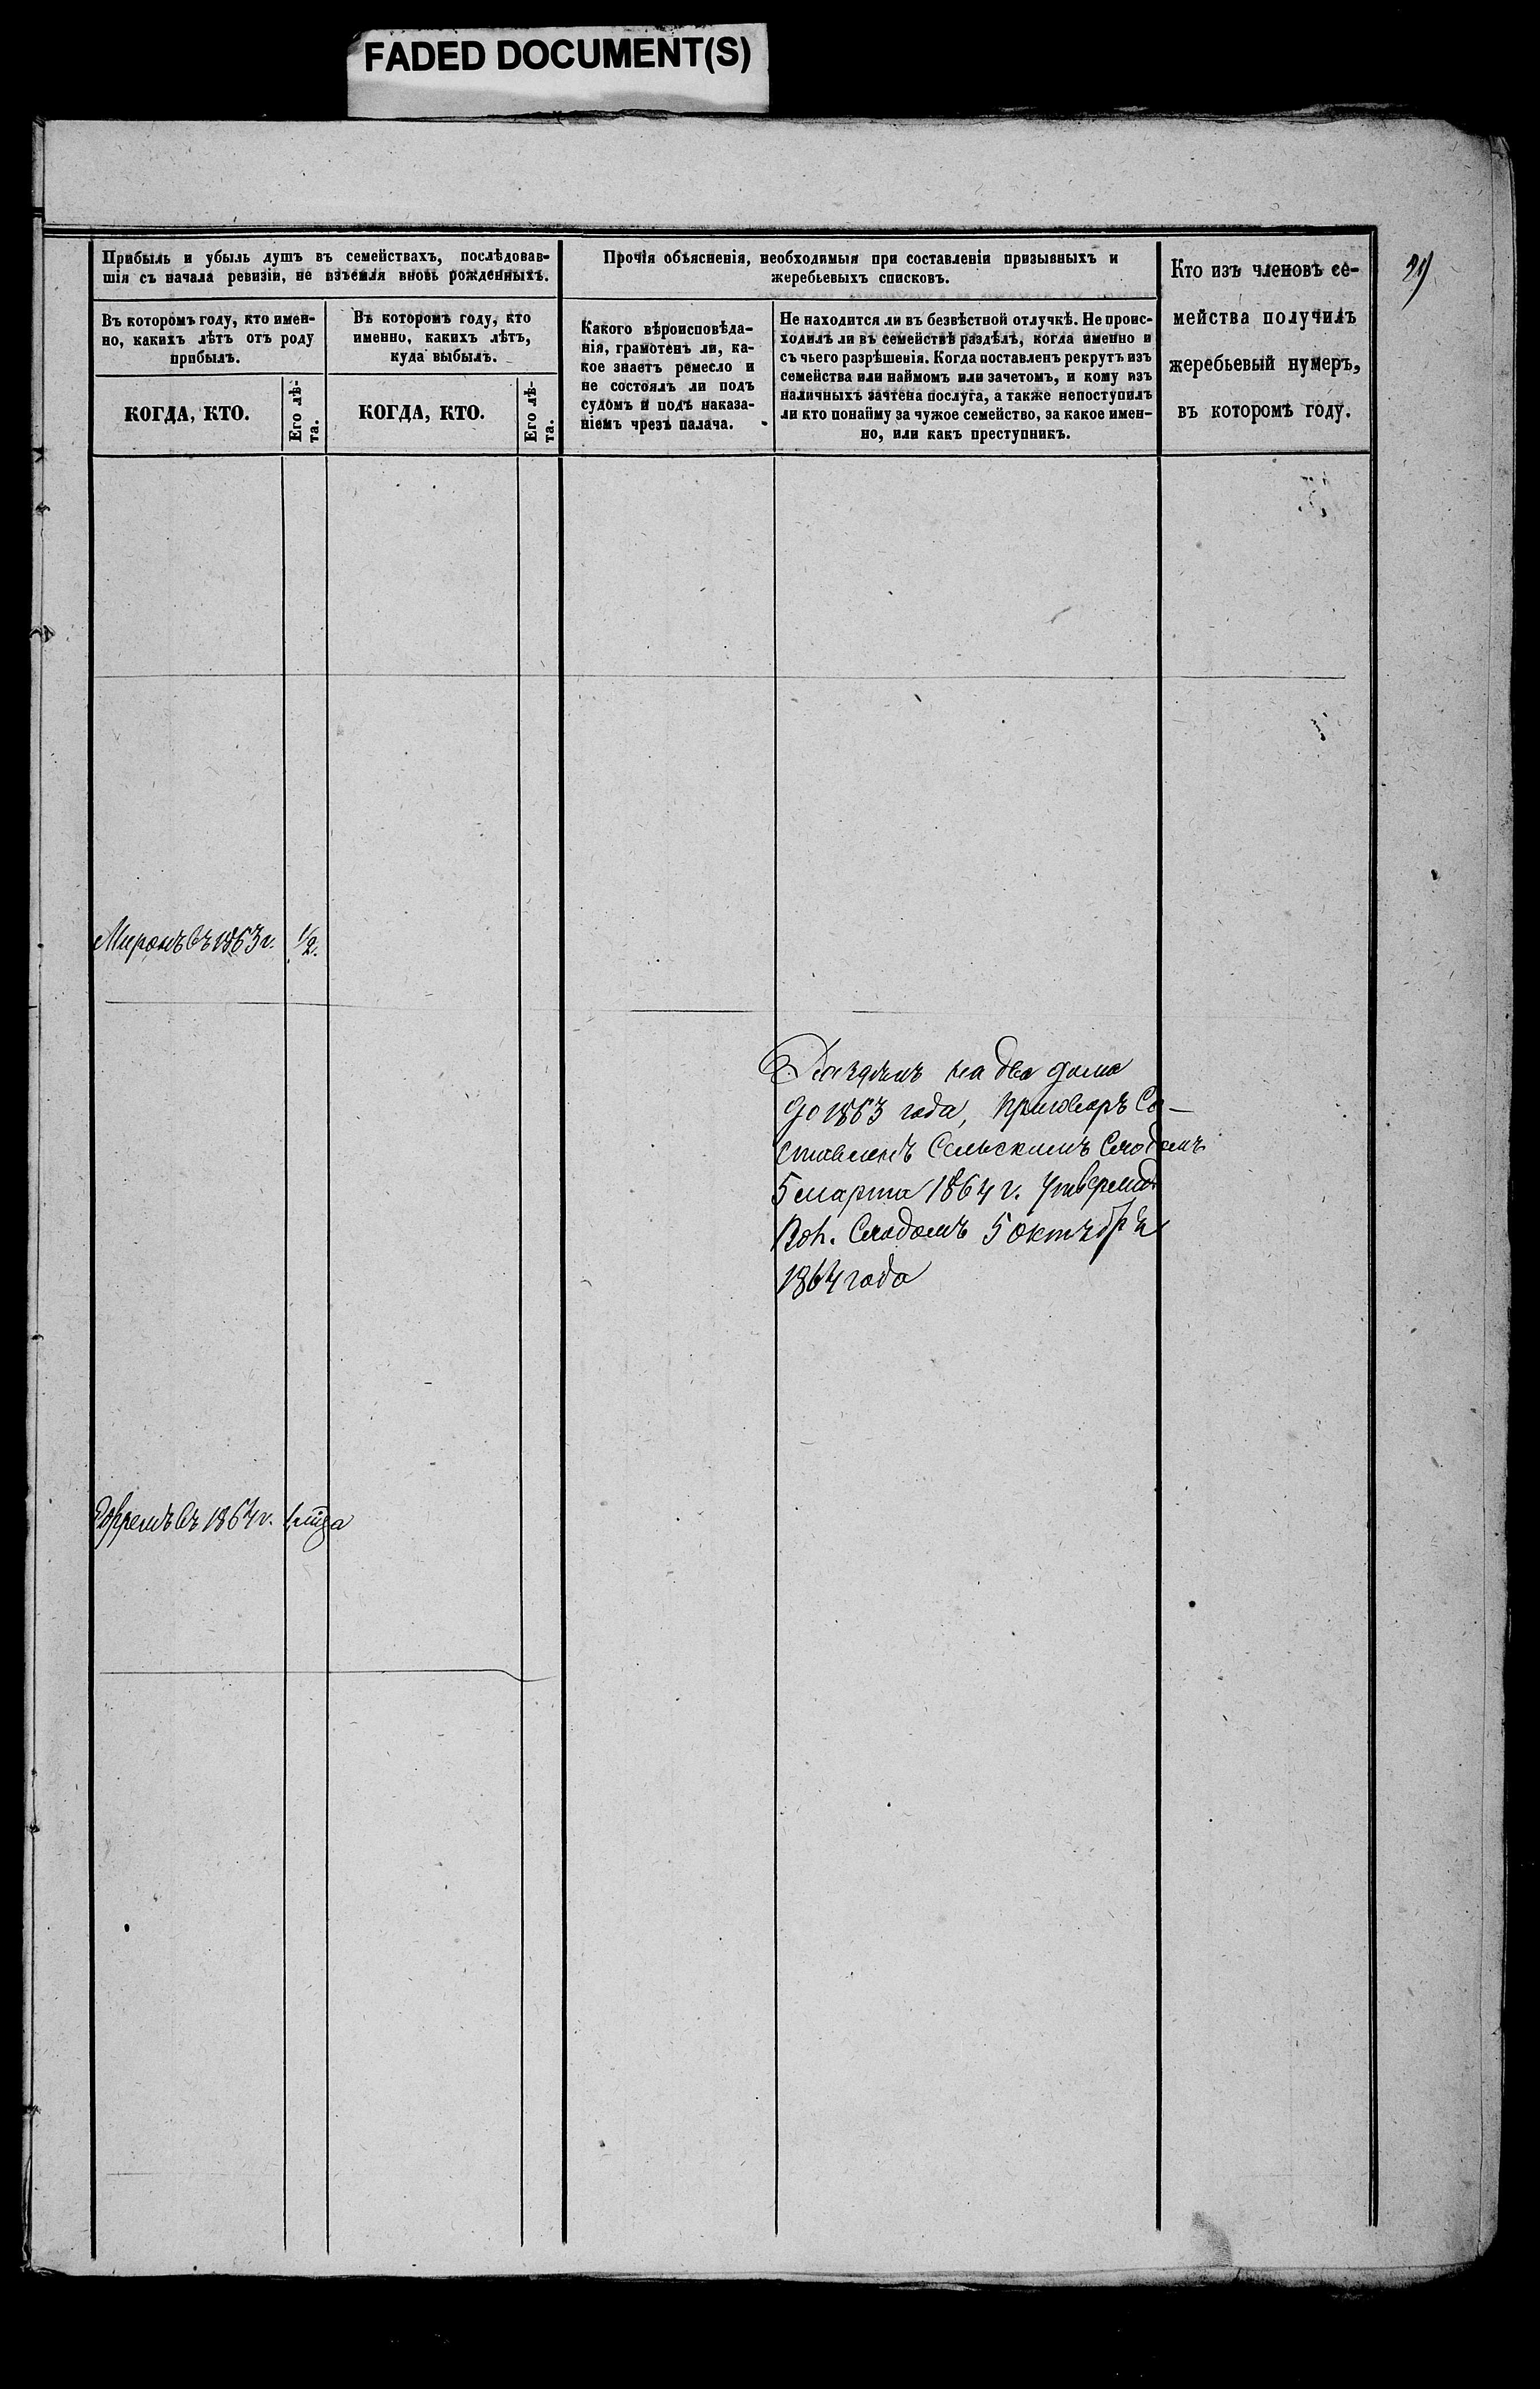 FADED DOCUMENT(S)
Прибыль и убыль душъ въ семействахъ, послѣдовав-
шія съ начала ревизіи, не изъемля вновь рожденныхъ.
Въ которомъ году, кто имен-
но, какихъ лѣтъ отъ роду
прибылъ.
КОГДА, КТО.
Его лѣ-
та.
Въ которомъ году, кто
именно, какихъ лѣтъ,
куда выбылъ.
КОГДА, КТО.
Его лѣ-
та.
Прочія объясненія, необходимыя при составленіи призывныхъ и
жеребьевыхъ списковъ.
Какого вѣроисповѣда-
нія, грамотенъ ли, ка-
кое знаетъ ремесло и
не состоялъ ли подъ
судомъ и подъ наказа-
ніемъ чрезъ палача.
Не находится ли въ безвѣстной отлучкѣ. Не проис-
ходилъ ли въ семействѣ раздѣлъ, когда именно и
съ чьего разрѣшенія. Когда поставленъ рекрутъ изъ
семейства или наймомъ или зачетомъ, и кому изъ
наличныхъ зачтена послуга, а также непоступилъ
ли кто понайму за чужое семейство, за какое имен-
но, или какъ преступникъ.
Кто изъ членовъ се-
мейства получилъ
жеребьевый нумеръ,
въ которомъ году.
Миронъ въ 1863 г. 1/2.
на два дома
до 1863 года, приговоръ Со-
ставленъ Сельскимъ Сходомъ
5 марта 1864 г.
Вол. Сходомъ 5 октября
1864 года
Ефремъ въ 1864 г.